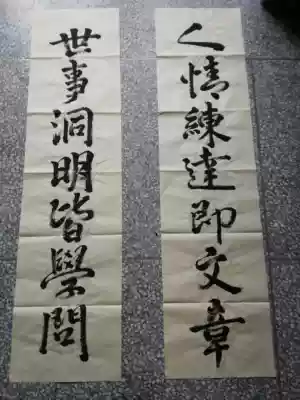 人情練達即文章
世事洞明皆學問